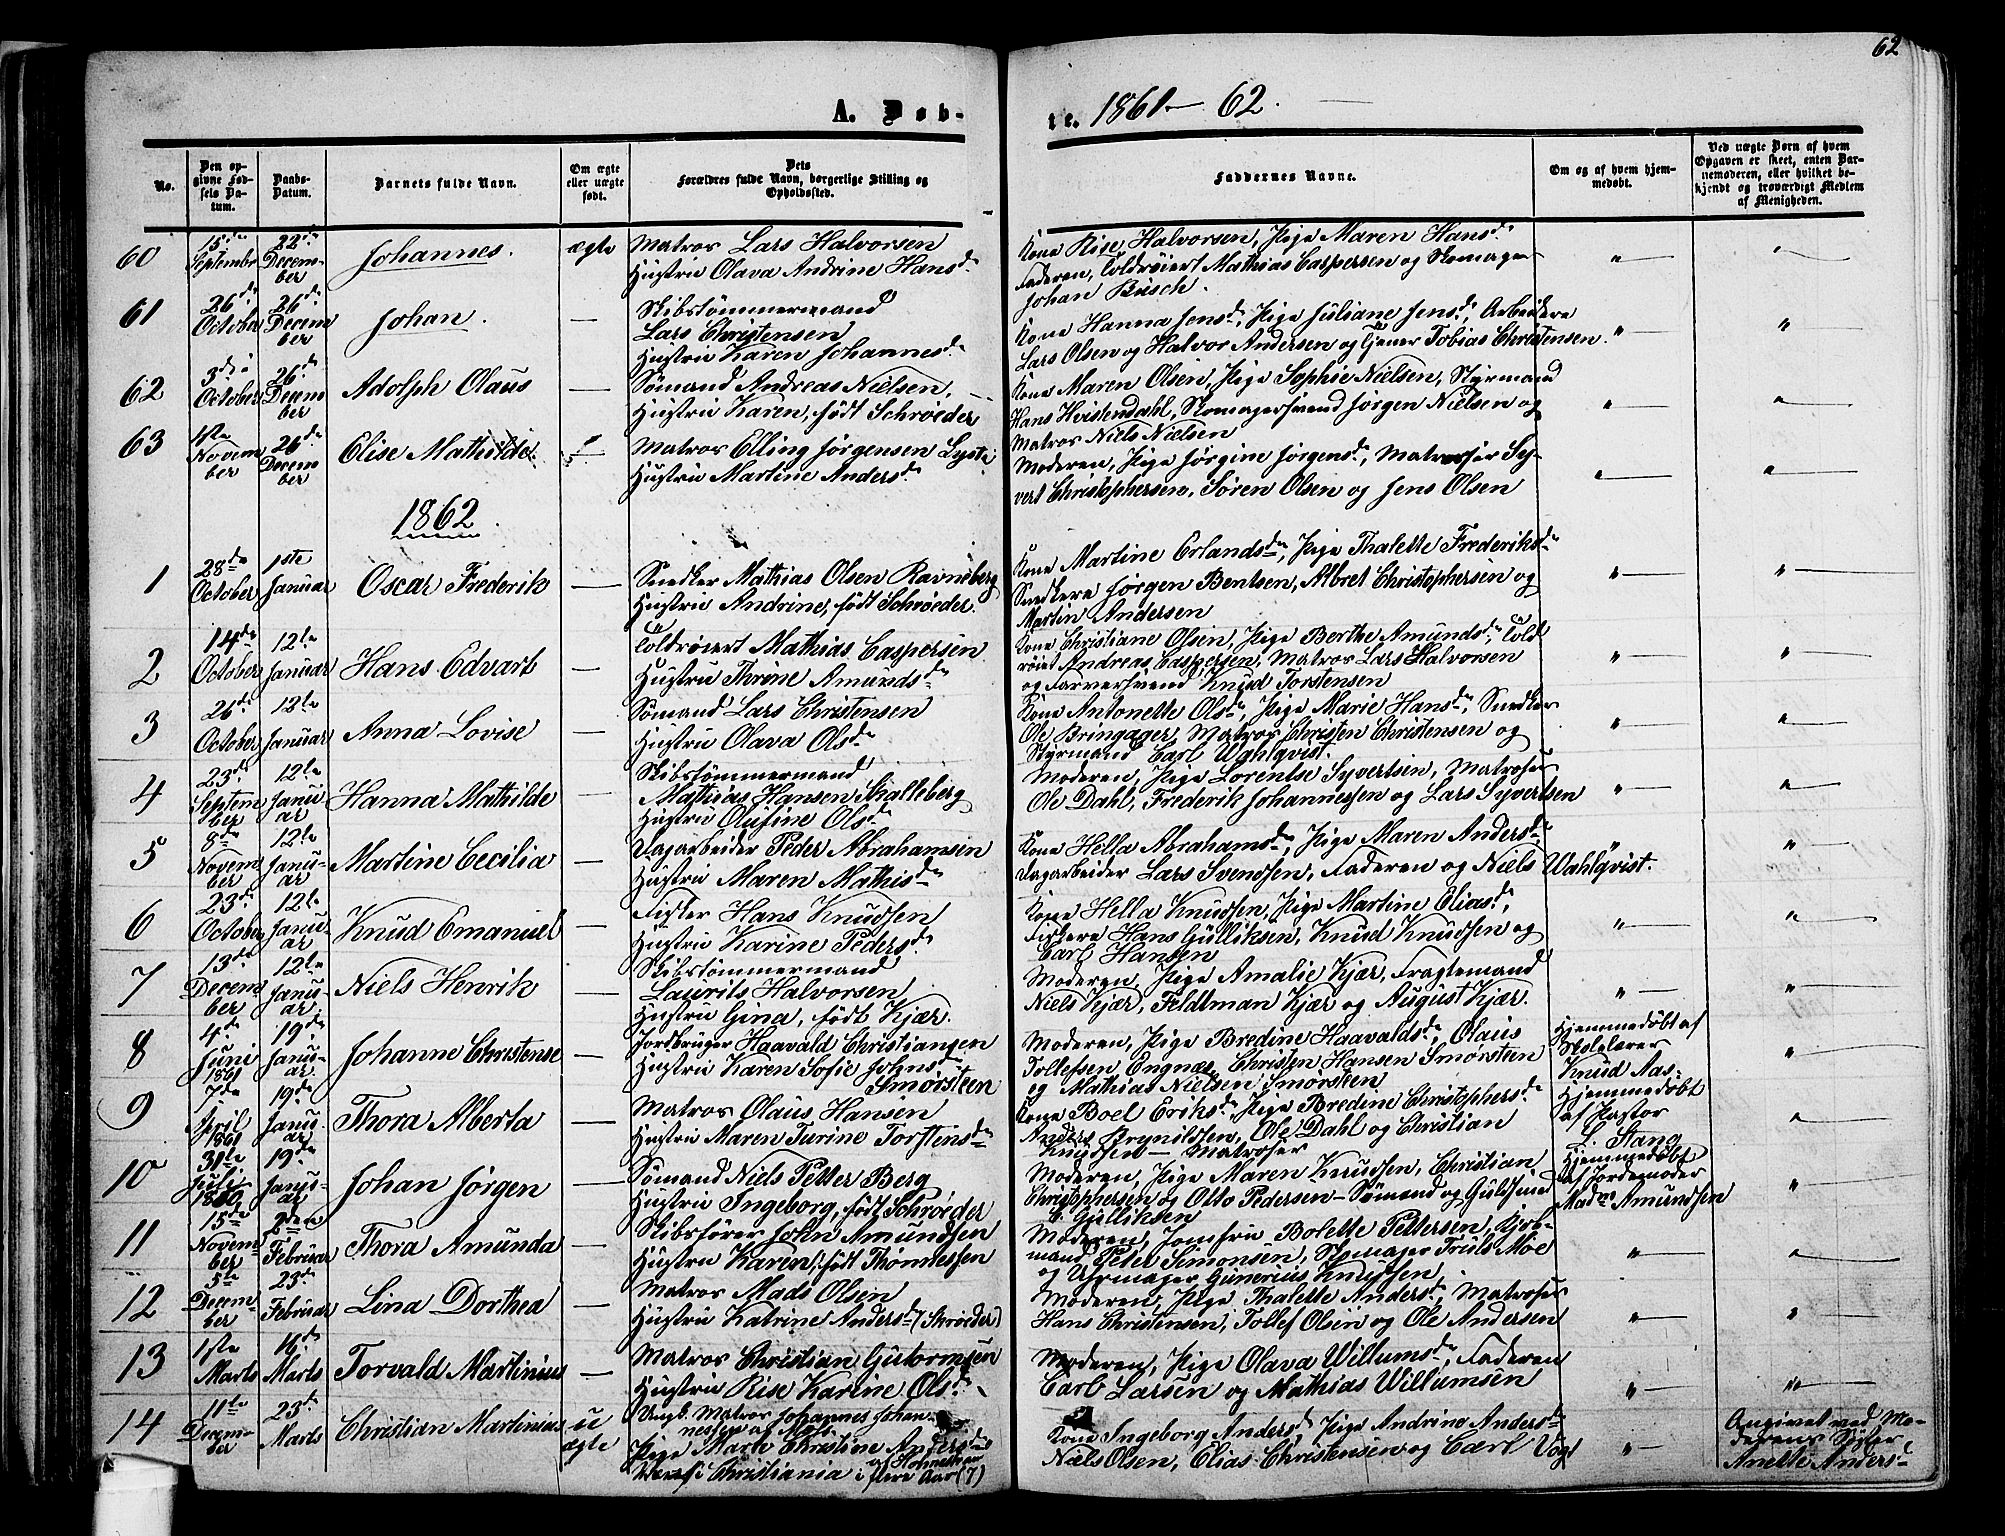 62
A. Døb-
te. 1861 - 62.
No.
Den op-
givne Fød-
sels Da-
tum.
Daabs-
Datum.
Barnets fulde Navn.
Om ægte
eller uægte
født.
Dets
Forældres fulde Navn, borgerlige Stilling og
Opholdssted.
Faddernes Navne.
Om og af hvem hjem-
medøbt.
Ved uægte Børn af hvem
Opgaven er skeet, enten Bar-
nemoderen, eller hvilket be-
kjendt og troværdigt Medlem
af Menigheden.
60
15de
Septembr
22de
Decem-
ber
Johannes.
ægte
Matros Lars Halvorsen
Hustru Olava Andrine Hansdr
Kone Rise Halvorsen, Pige Maren Hansdr
Faderen, Toldroiert Mathias Caspersen og Skomager
Johan Busch.
"
"
61
26de
October
26de
Decem
ber
Johan.
—
Skibstømmermand
Lars Christensen
Hustru Karen Johannesdr
Kone Hanna Jensdr, Pige Juliane Jensdr, Arbeidere
Lars Olsen og Halvor Andersen og Tjener Tobias Christensen.
"
"
62
3die
October
26de
Decem
ber
Adolph Olaus
—
Sømand Andreas Nielsen,
Hustru Karen, født Schrøeder
Kone Maren Olsen, Pige Sophie Nielsen, Styrmand
Hans Hvistendahl, Skomagersvend Jørgen Nielsen og
Matros Niels Nielsen
"
"
63
1ste
Novem
ber
26de
Decem
ber
Elise Mathilde
—
Matros Elling Jørgensen Lyste
Hustru Martine Andersdr
Moderen, Pige Jørgine Jørgensdr, Matroser Sy-
vert Christophersen, Søren Olsen og Jens Olsen
"
"
1862.
1
28de
October
1ste
Januar
Oscar Frederik
—
Snedker Mathias Olsen Ravneberg
Hustru Andrine, født Schrøeder.
Kone Martine Erlandsdr, Pige Thalette Frederiksdr
Snedkere Jørgen Bentsen, Albret Christophersen og
Martin Andersen
"
"
2
14de
October
12te
Januar
Hans Edvart
—
Toldroiert Mathias Caspersen
Hustru Thrine Amundsdr
Kone Christiane Olsen, Pige Berthe Amundsdr, Told
roiet Andreas Caspersen, Matros Lars Halvorsen
og Farversvend Knud Torstensen
"
"
3
26de
October
12te
Januar
Anna Lovise
—
Sømand Lars Christensen
Hustru Olava Olsdr
Kone Antonette Olsdr, Pige Marie Hansdr, Snedker
Ole Bringager, Matros Christen Christensen og
Styrmand Carl Wahlqvist.
"
"
4
23de
Septem
ber
12te
Janu
ar
Hanna Mathilde
—
Skibstømmermand
Mathias Hansen Skalleberg
Hustru Olufine Olsdr
Moderen, Pige Lorentse Syvertsen, Matroser
Ole Dahl, Frederik Johannessen og Lars Syvertsen
"
"
5
8de
Novem
ber
12te
Janu-
ar
Martine Cecilia
—
Dagarbeider Peder Abrahamsen
Hustru Maren Mathisdr
Kone Hella Abrahamsdr, Pige Maren Andersdr
Dagarbeider Lars Svendsen, Faderen og Niels Wahlqvist.
"
"
6
23de
October
12te
Janu-
ar
Knud Emanuel
—
Fisker Hans Knudsen
Hustru Karine Pedersdr
Kone Hella Knudsen, Pige Martine Eliasdr,
Fiskere Hans Gulliksen, Knud Knudsen og
Carl Hansen
"
"
7
13de
Decem
ber
12te
Janu-
ar.
Niels Henrik
—
Skibstømmermand
Laurits Halvorsen
Hustru Gina, født Kjær.
Moderen, Pige Amalie Kjær, Fragtemand
Niels Kjær, Feldtman Kjær og August Kjær.
"
"
8
4de
Juni
1861
19de
Janu-
ar.
Johanne Christense
—
Jordbruger Haavald Christiansen
Hustru Karen Sofie Johnsdr
Smørsteen
Moderen, Pige Bredine Haavaldsdr, Olaus
Tollefsen Engnæs, Christen Hansen Smørsteen
og Mathias Nielsen Smørsteen
Hjemmedøbt af
Skolelærer
Knud Aas.
"
9
7de
April
1861
19de
Janu-
ar
Thora Alberta
—
Matros Olaus Hansen
Hustru Maren Turine Torstensdr
Kone Boel Eriksdr, Pige Bredine Christophersdr
Anders Brynildsen, Ole Dahl og Christian
Knudsen — Matroser
Hjemmedøbt
af Pastor
L. Stang
"
10
31te
Juli
1860
19de
Janu-
ar
Johan Jørgen
—
Sømand Niels Petter Berg
Hustru Ingeborg, født Schrøeder
Moderen, Pige Maren Knudsen, Christian
Christophersen og Otto Pedersen — Sømænd og Guldsmed
G. Gulliksen
Hjemmedøbt
af Jordemoder
Madm Amundsen
"
11
15de
Novem-
ber
2den
Februar
Thora Amunda
—
Skibsfører John Amundsen
Hustru Karen, født Thommessen
Moderen, Jomfru Bolette Pettersen, Kjøb-
mand Peter Simonsen, Skomager Truls Moe
og Uhrmager Gunerius Knudsen
"
"
12
5te
Decem-
ber
23de
Februar
Lina Dorthea
—
Matros Mads Olsen
Hustru Katrine Andersdr (Schrøeder)
Moderen, Pige Thalette Andersdr, Matroser
Hans Christensen, Tollef Olsen og Ole Andersen
"
"
13
1ste
Marts
16de
Marts
Torvald Martinius
—
Matros Christian Gutormsen
Hustru Rise Karine Olsdr
Moderen, Pige Olava Willumsdr, Faderen
Carl Larsen og Mathias Willumsen
"
"
14
11te
Decem-
ber
23de
Marts
Christian Martinius
u
ægte
Ungk. Matros Johannes Johan-
nessen af Moss.
Pige Marte Christine Andersdr
af Holmestrand
Været i Christiania i flere Aar (7)
Kone Ingeborg Andersdr, Pige Andrine Andersdr
Niels Olsen, Elias Christensen og Carl Vogt
"
Angivet ved Mo-
derens Søster
Anette Andersdr